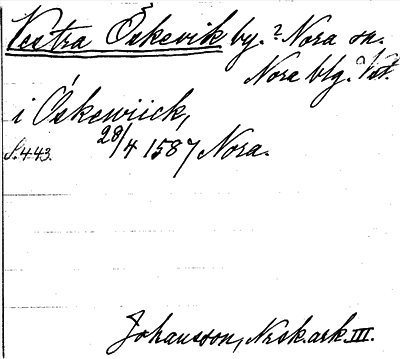 Vestra Öskevik by.? Nora sn.
Nora blg. Vstm.
i Öskewiick,
S. 443. 28/4 1587 Nora.
Johansson, Nosk. ark. III.